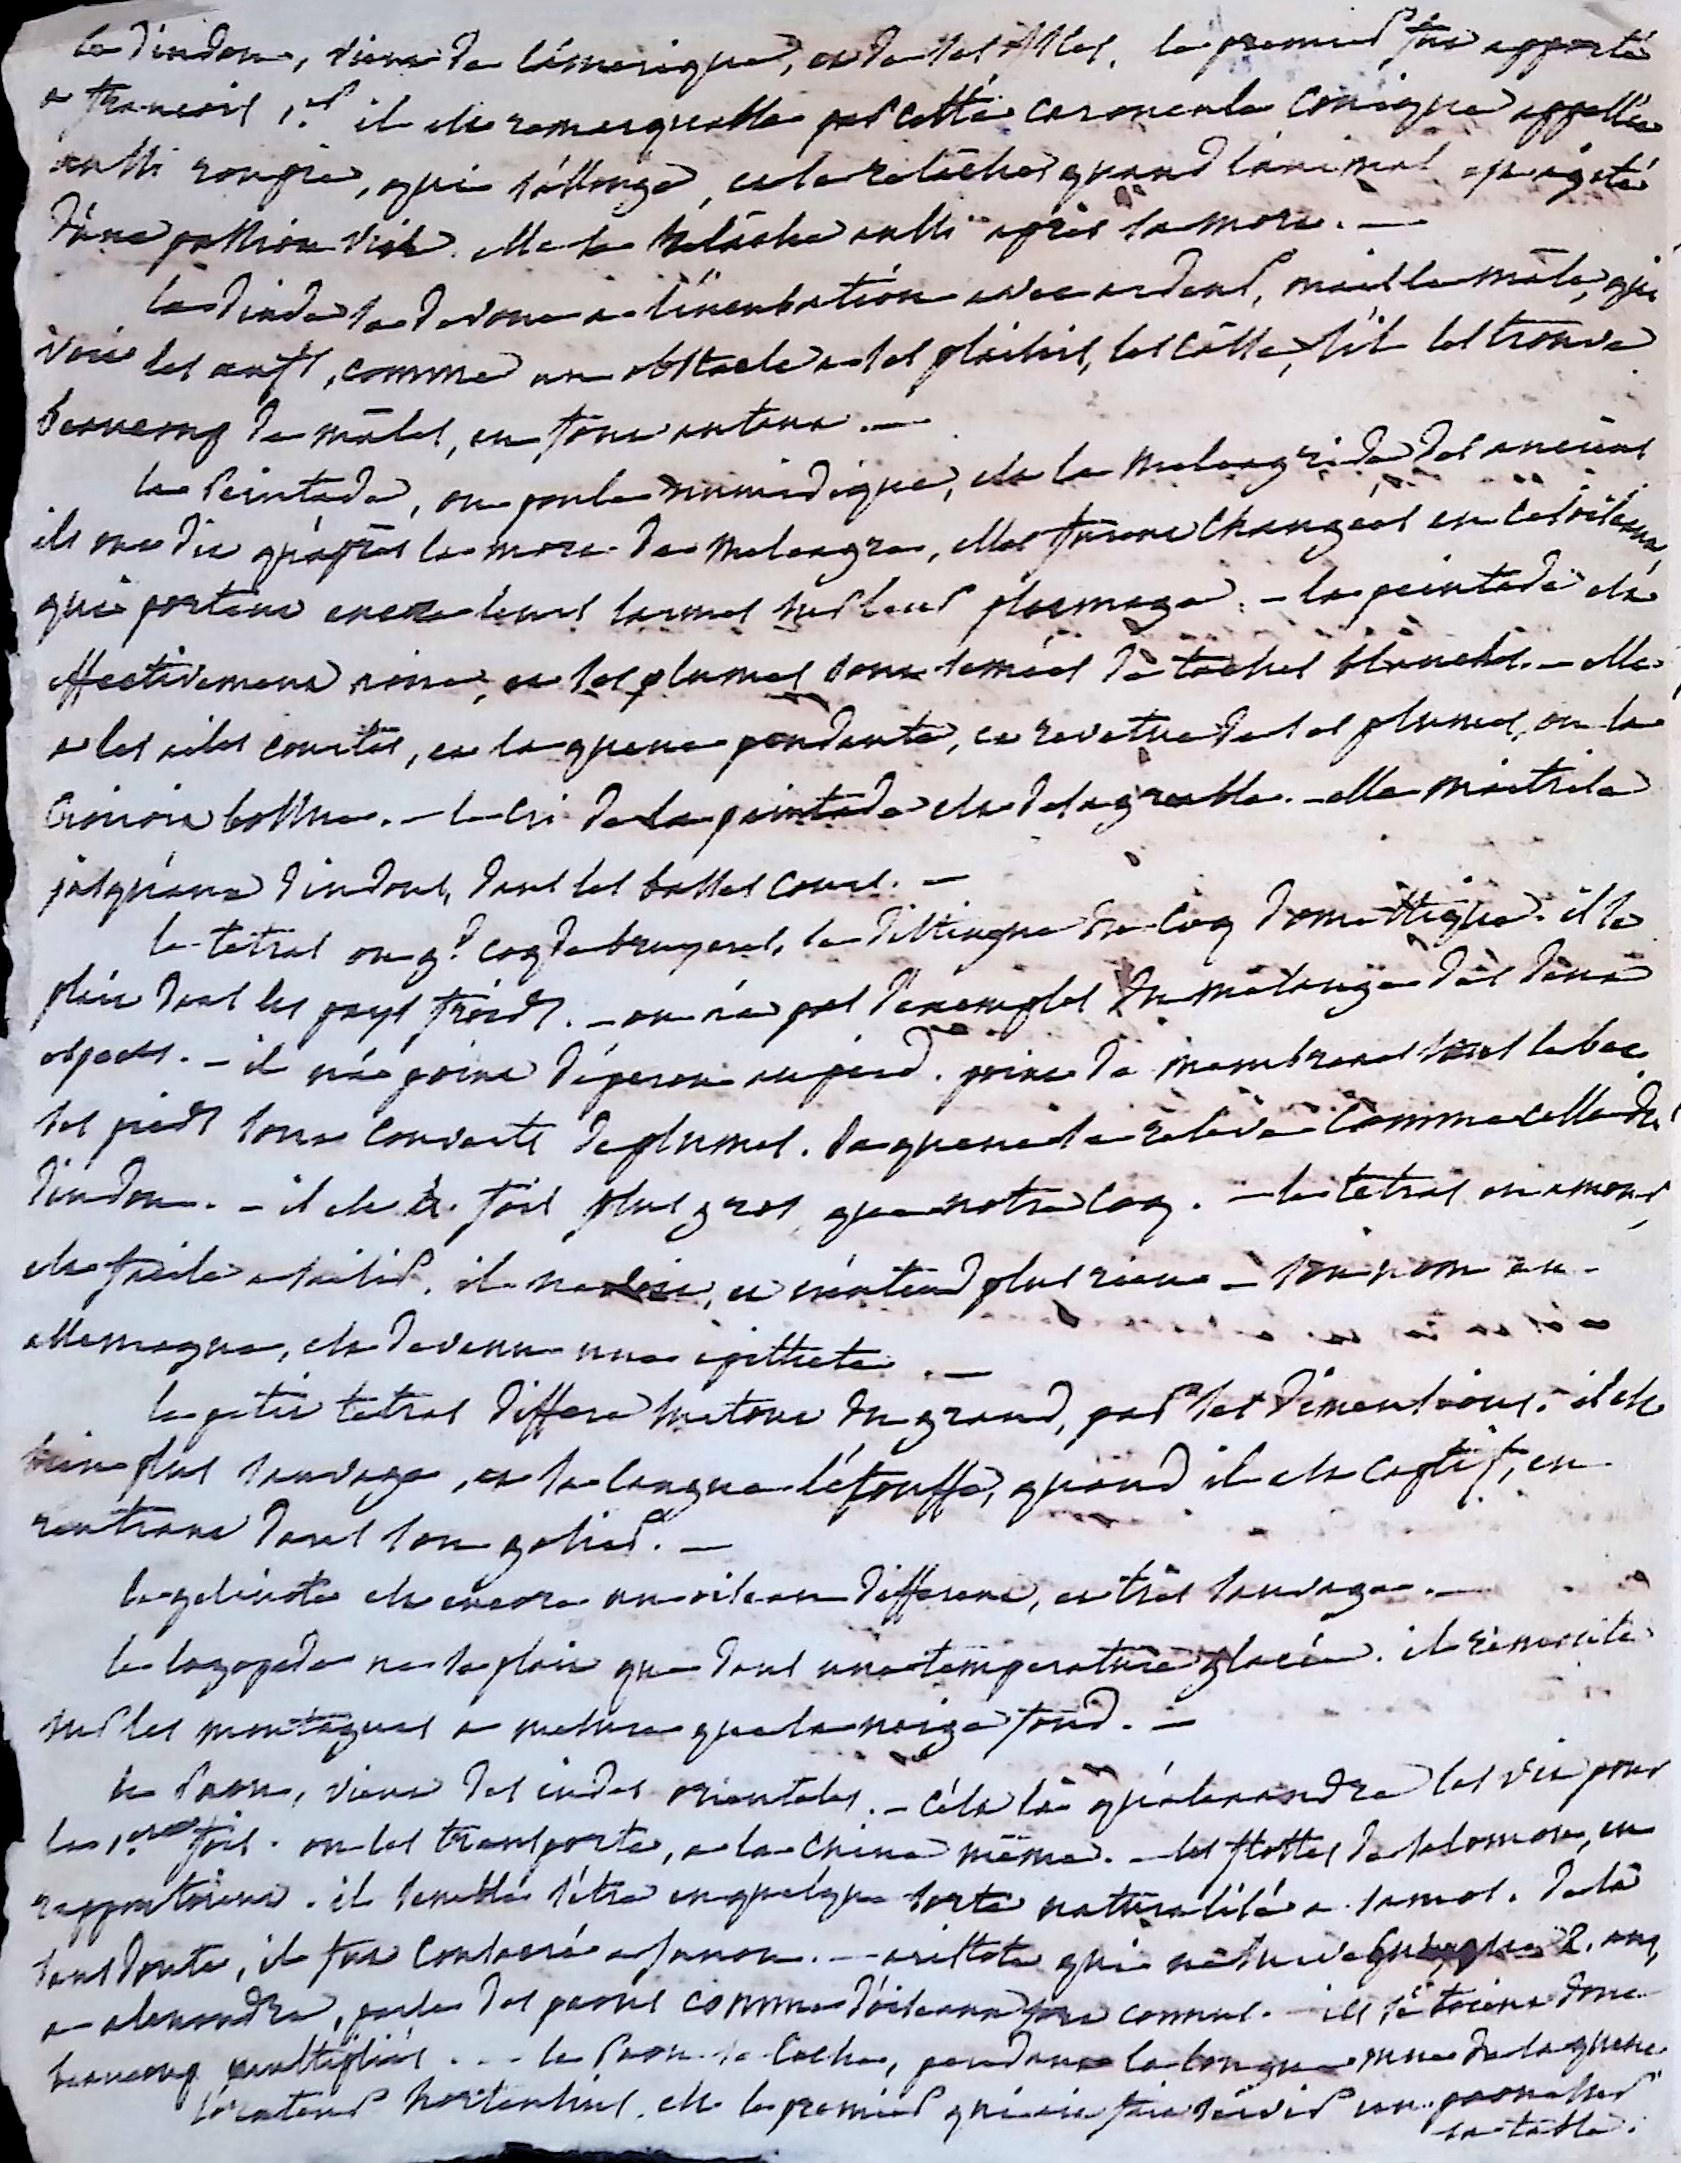 le dindon, vient de l'amerique, et de ses isles. le premier fut apporté
a francois 1.er il est remarquable par cette caroncule conique appellée
aussi rougie, qui s'allonge, et se relâche quand l'animal est agité
d'une passion vive. elle se relâche aussi après sa mort. —
la dinde se devoue a l'incubation avec ardeur, mais le mâle, qui
voit les œufs, comme un obstacle a ses plaisirs, les casse, s'il les trouve
beaucoup de mâles, en font autant. —
la Peintade, ou poule numidique, est la meleagride des anciens
ils ont dit qu'après la mort de meleagre, elles furent changées en ces oiseaux,
qui portent encore leurs larmes sur leur plumage. – la peintade est
effectivement noire, et ses plumes sont semées de taches blanches. – elle
a les ailes courtes, et la queue pendante, et revetue de ses plumes, on la
croiroit bossue. – le cri de la peintade est desagreable. – elle maitrise
jusqu'aux dindons, dans les basses cours. —
le tetras ou g.d coq de bruyeres, se distingue du coq domestique. il se
plait dans les pays froids. – on n'a pas d'exemples du melange des deux
especes. – il n'a point d'éperon au pied. point de membranes sous le bec.
ses pieds sont couverts de plumes. sa queue se relève comme celle du
dindon. – il est fois plus gros, que notre coq. – le tetras en amour,
est facile a saisir. il ne voit, et n'entend plus rien – son nom en
allemagne, est devenu une epithete. —
le petit tetras differe surtout du grand, par ses dimensions. il est
bien plus sauvage, et sa langue l'étouffe, quand il est captif, en
rentrant dans son gosier. —
la gelinote est encore un oiseau different, et très sauvage. —
le lagopede ne se plait que dans une temperature glacée. il remonte
sur les montagnes a mesure que la neige fond. —
le Paon, vient des indes orientales. – c'est là qu'alexandre les vit pour
la 1.ere fois. on les transporta, a la chine même. – les flottes de salomon, en
rapportoient. il semble s'être en quelque sorte naturalisé a samos. de là
sans doute, il fut consacré a Junon. — aristote qui ne survecut que 2. ans,
a alexandre, parle des paons comme d'oiseaux fort connus. – ils s'étoient donc
beaucoup multipliés. . – le Paon se cache, pendant la longue mue de sa queue
l'orateur hortensius, est le premier qui ait fait servir un paon sur
sa table.